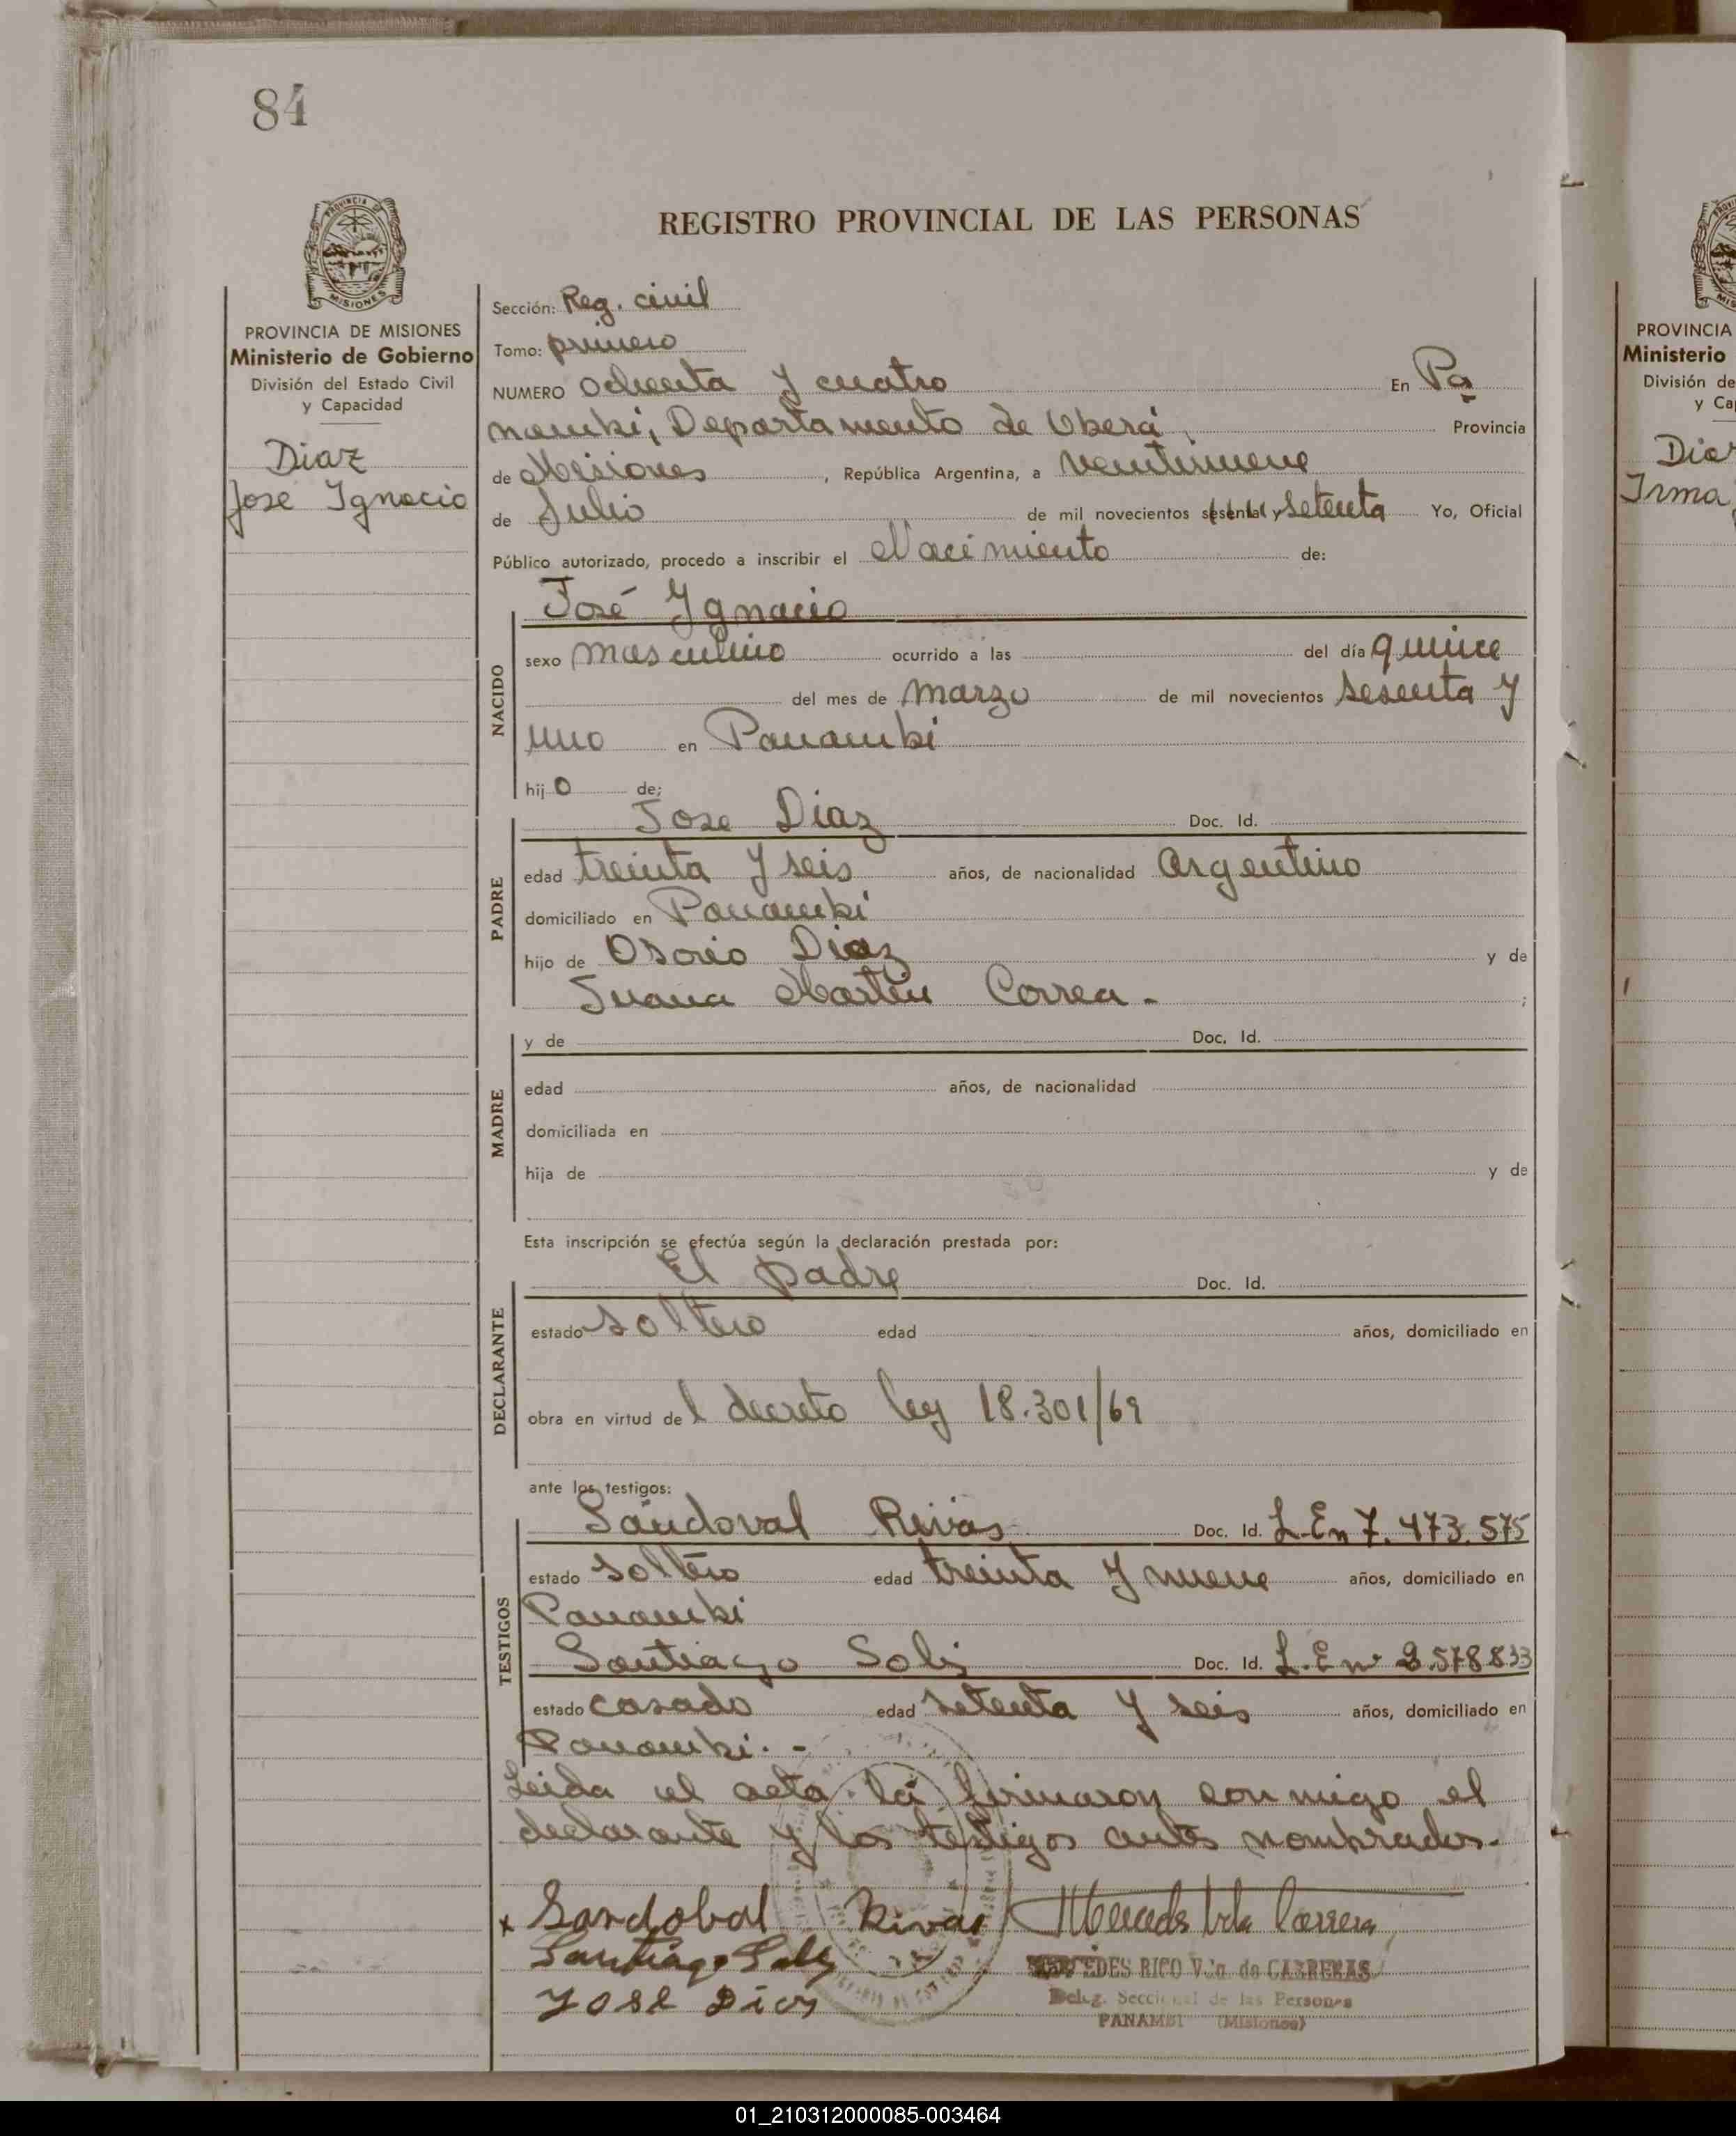 84
REGISTRO PROVINCIAL DE LAS PERSONAS
PROVINCIA DE MISIONES
MISIONES
PROVINCIA DE MISIONES
Ministerio de Gobierno
División del Estado Civil
y Capacidad
Diaz
Jose Ignacio
Sección: Reg. civil
Tomo: primero
NUMERO Ochenta y cuatro En Pa
nambi, Departamento de Oberá, Provincia
de Misiones, República Argentina, a veintinueve
de Julio de mil novecientos sesenta y setenta Yo, Oficial
Público autorizado, procedo a inscribir el Nacimiento de:
NACIDO
José Ygnacio
sexo masculino ocurrido a las del día quince
del mes de marzo de mil novecientos sesenta y
uno en Panambi
hijo de;
PADRE
Jose Diaz Doc. Id.
edad treinta y seis años, de nacionalidad Argentino
domiciliado en Panambi
hijo de Osorio Diaz y de
Juana Martin Correa.-;
MADRE
y de Doc. Id.
edad años, de nacionalidad
domiciliada en
hija de y de
Esta inscripción se efectúa según la declaración prestada por:
DECLARANTE
El padre Doc. Id.
estado soltero edad años, domiciliado en
obra en virtud del decreto ley 18.301/69
ante los testigos:
TESTIGOS
Sandoval Rivas Doc. Id. L.En 7.473.575
estado soltero edad treinta y nueve años, domiciliado en
Panambi
Santiago Solis Doc. Id. L.E nº 2.578.833
estado casado edad setenta y seis años, domiciliado en
Panambi.-
Leida el acta la firmaron conmigo el
declarante y los testigos antes nombrados.
x Sandobal Rivas
Santiago Solis
Jose Dias
MERCEDES RICO Vda. de CARRERAS
Deleg. Seccional de las Personas
PANAMBI (Misiones)
PROVINCIA
Ministerio
División de
y Ca
Diaz
Irma
01_210312000085-003464